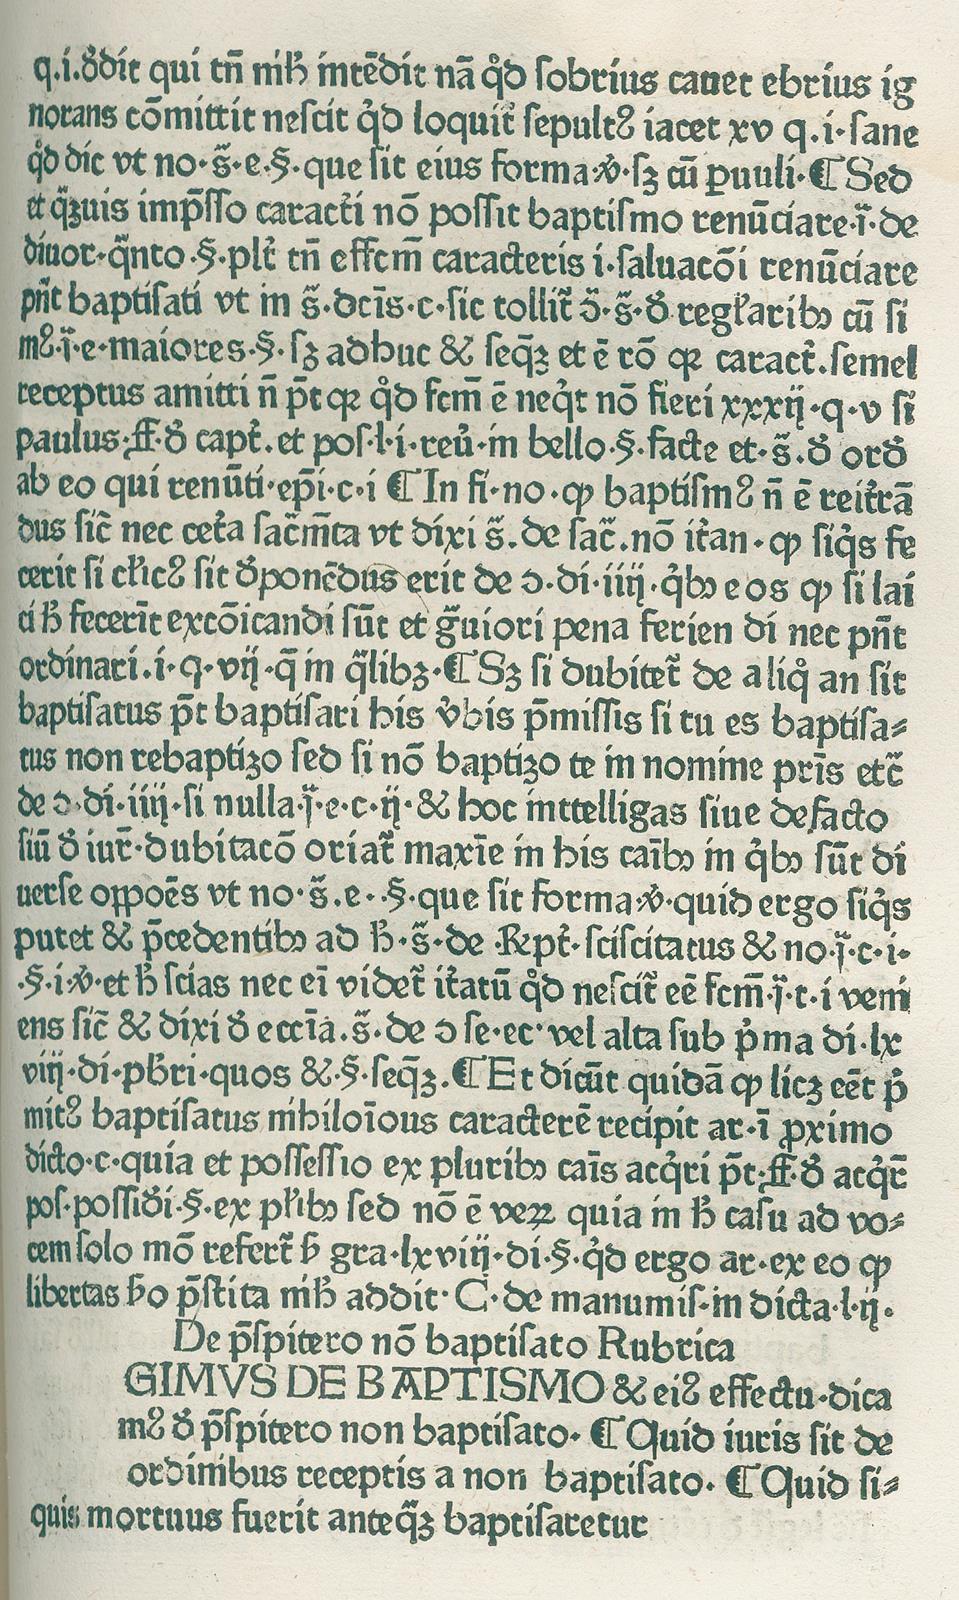 q.i.ꝺ̉dit qui tn̄ nihꝉ intēdit nā qͦd sobrius cauet ebrius ig
norans cōmittit nescit qͦd loquit᷑ sepultꝰ iacet xv q.i.sane
qͦd dic vt no.s̄.e.§.que sit eius forma.ꝟ.sꝫ cū ꝑuuli.¶ Sed
et qᷓꝫuis imp̄sso caract̉i nō possit baptismo renūciare.ī.de
diuor.qᷓnto.§.plt̉ tn̄ effcm̄ caracteris i.saluacōi renūciare
pn̄t baptisati vt in s̄.dcīs.c.sic tollit᷑ ↄ̄.s̄.ꝺ̉ regꝉaribꝫ cū si
mꝰ.ī.e.maiores.§.sꝫ adhuc & seqᷓꝫ et ē rō qꝛ caract̉.semel
receptus amitti n̄ p̄t qꝛ qͦd fcm̄ ē neqͥt nō fieri xxxij.q.v si
paulus.ff.ꝺ̉ capt̉.et pos.l.i.reủ.in bello.§.facte et.s̄.ꝺ̉ orꝺ̉
ab eo qui renūti.ep̄i.c.i ¶ In fi.no.ꝙ baptismꝰ n̄ ē reit̉rā
dus sic̄ nec cet̉a sac̄m̄ta vt dixi s̄.de sac̄.nō it̉an.ꝙ siqͥs fe
cerit si cꝉicꝰ sit ꝺ̉ponēdus erit de ↄ.di.iiij.qͥbꝫ e os ꝙ si lai
ci hꝉ fecerīt excōicandi sūt et gᷓuiori pena ferien di nec pn̄t
ordinari.i.q.vij.qᷓ in qᷓlibꝫ.¶ Sꝫ si dubitet᷑ de a liqͦ an sit
baptisatus p̄t baptisari his ꝟbis p̄missis si tu es baptisa⸗
tus non rebaptizo sed si nō baptizo te in nomine prīs etc̄
de ↄ.di.iiij.si nulla.ī.e.c.ij.& hoc inttelligas siue defacto
siū ꝺ̉ iur̄.dubitacō oriat᷑ maxīe in his caībꝫ in qͥbꝫ sūt di
uerse oppoēs vt no.s̄.e..§.que sit forma.ꝟ.quid ergo siqͥs
putet & p̄cedentibꝫ ad hꝉ.s̄.de .Rept̉.sciscitatus & no.ī.c.i.
.§.i.ꝟ.et hꝉ scias nec eī videt᷑ it̉atū qͦd nescit᷑ eē fcm̄.ī.t.i veni
ens sic̄ & dixi ꝺ̉ eccīa.s̄.de ↄ se.ec.vel alta sub pͥma di.lx
viij.di.pbrī.quos &.§.seqᷓꝫ.¶ Et dicūt quidā ꝙ licꝫ eēt pͥ
mitꝰ baptisatus nihiloīous caracterē recipit ar.ī ꝓximo
dicto.c.quia et possessio ex pluribꝫ caīs acqͥri p̄t.ff.ꝺ̉ acqͥr̄
pos.possiꝺ̉i.§.ex pꝉibꝫ sed nō ē veꝝ quia in hꝉ casu ad vo⸗
cem solo mō refert᷑ hꝉ gra.lxviij.di.§.qͥd ergo ar.ex eo ꝙ
libertas hꝉo p̄stita nihꝉ addit.C.de manumis.in dicta.l.ij.
De p̄spitero nō baptisato Rubrica
GIMVS DE BAPTISMO & eiꝰ effectu.dica
mꝰ ꝺ̉ p̄spitero non baptisato.¶ Quid iuris sit de
ordinibus receptis a non baptisato.¶ Quid si⸗
quis mortuus fuerit anteqᷓꝫ baptisaretur